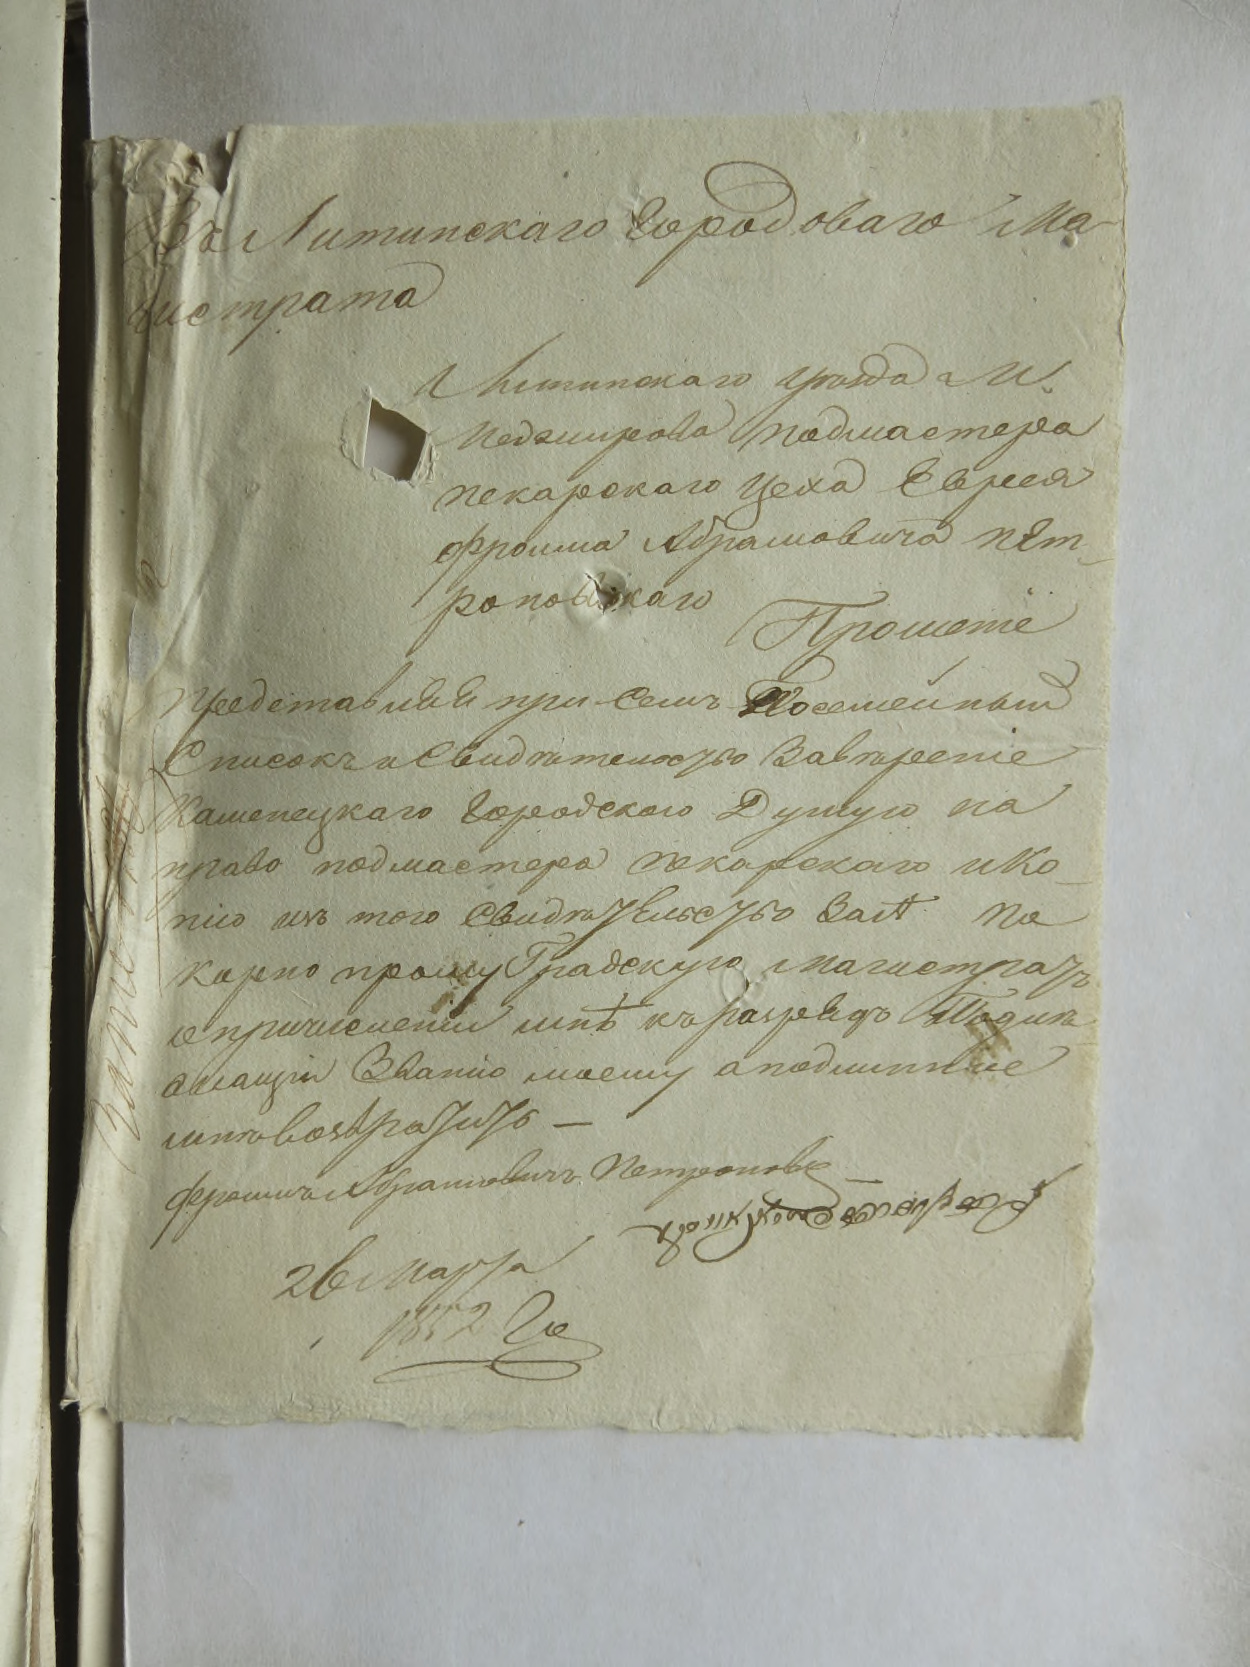 Въ Литинскаго Городоваго Ма-
гистрата
Литинскаго уѣзда М.
Меджирова подмастера
пекарскаго цеха Еврея
Фроима Абрамовича Пет-
роповскаго
Прошеніе
Представляя при семъ Посемейный
Списокъ и Свидѣтельство Завѣреніе
Каменецкаго Городского Думую на
право подмастера пекарскаго и Ко-
пію изъ того Свидѣтельство По
корно прошу Градскую Магистратъ
о причисленіи мнѣ къ разрядъ
Званію моему а подлинные
мнѣ возвратить —
Фроимъ Абрамовичъ Петроповс
26 Марта
1852 Го